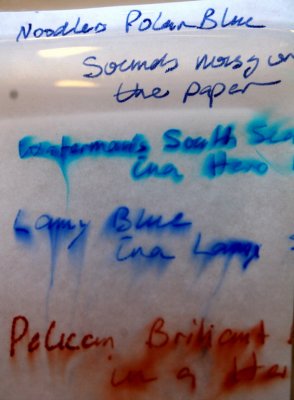 Noodlers Polar Blue
Sounds nosy on
the paper
Watermans South Sea
in a Hero
Lamy Blue
in a Lamy
Pelican Briliant
in a Her